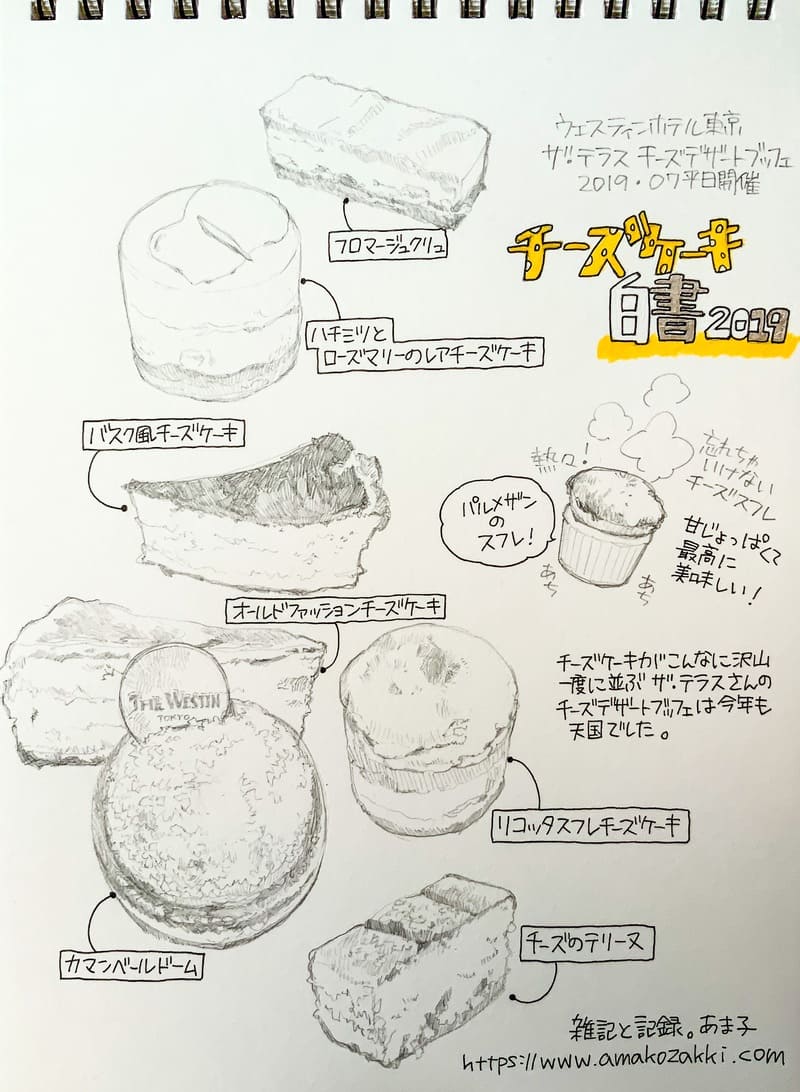 ウェスティンホテル東京
ザ・テラス チーズデザートブッフェ
2019・07平日開催
チーズケーキ
白書2019
フロマージュクリュ
ハチミツと
ローズマリーのレアチーズケーキ
バスク風チーズケーキ
熱々!
忘れちゃ
いけない
チーズスフレ
パルメザン
の
スフレ!
あち
あち
甘じょっぱくて
最高に
美味しい!
オールドファッションチーズケーキ
THE WESTIN
TOKYO
チーズケーキがこんなに沢山
一度に並ぶ ザ・テラスさんの
チーズデザートブッフェは今年も
天国でした。
リコッタスフレチーズケーキ
カマンベールドーム
チーズのテリーヌ
雑記と記録。あま子
https://www.amakozakki.com